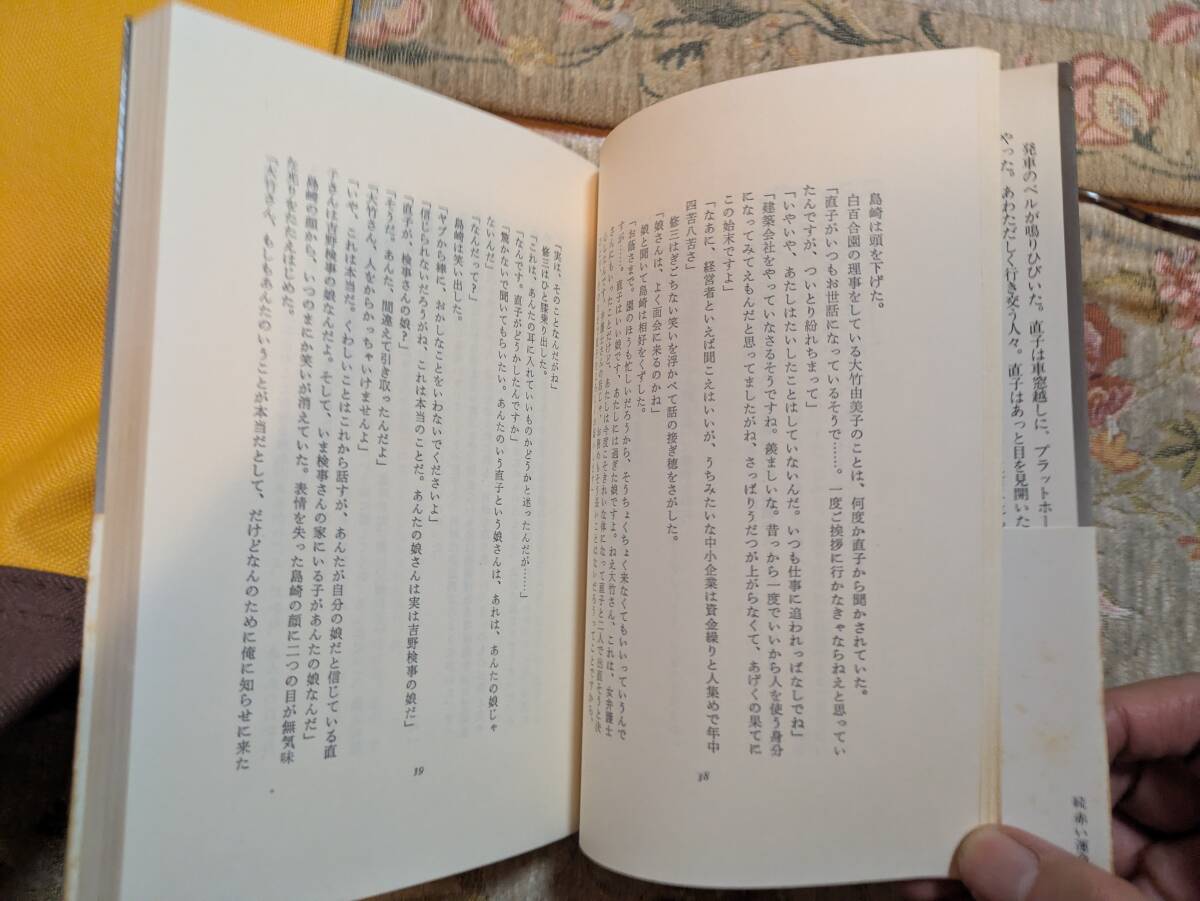 発車のベルが鳴りひびいた。直子は車窓越しに、プラットホー
やった。あわただしく行き交う人々。直子はあっと目を見開いた
続 赤い運命
島崎は頭を下げた。
白百合園の理事をしている大竹由美子のことは、何度か直子から聞かされていた。
「直子がいつもお世話になっているそうで……。一度ご挨拶に行かなきゃならねえと思ってい
たんですが、つい取り紛れちまって」
「いやいや、あたしはたいしたことはしていないんだ。いつも仕事に追われっぱなしでね」
「建築会社をやっていなさるそうですね。羨ましいな。昔っから一度でいいから人を使う身分
になってみてえもんだと思ってましたがね、さっぱりうだつが上がらなくて、あげくの果てに
この始末ですよ」
「なあに、経営者といえば聞こえはいいが、うちみたいな中小企業は資金繰りと人集めで年中
四苦八苦さ」
修三はぎごちない笑いを浮かべて話の接ぎ穂をさがした。
「娘さんは、よく面会に来るのかね」
娘と聞いて島崎は相好をくずした。
「お蔭さまで。園のほうも忙しいだろうから、そうちょくちょく来なくてもいいっていうんで
すが……。直子はいい娘です。あたしには過ぎた娘ですよ。ねえ大竹さん、これは、女弁護士
さんにもいったことだけど、あたしは今度こそきれいな体になって直子と二人で出直そうと決
38
「実は、そのことなんだがね」
修三はひと膝乗り出した。
「これは、あんたの耳に入れていいものかどうかと迷ったんだが……」
「なんです。直子がどうかしたんですか」
「驚かないで聞いてもらいたい。あんたのいう直子という娘さんは、あれは、あんたの娘じゃ
ないんだ」
「なんだって？」
島崎は笑い出した。
「ヤブから棒に、おかしなことをいわないでくださいよ」
「信じられないだろうがね、これは本当のことだ。あんたの娘さんは実は吉野検事の娘だ」
「直子が、検事さんの娘？」
「そうだ。あんた、間違えて引き取ったんだよ」
「大竹さん、人をからかっちゃいけませんよ」
「いや、これは本当だ。くわしいことはこれから話すが、あんたが自分の娘だと信じている直
子さんは吉野検事の娘なんだよ。そして、いま検事さんの家にいる子があんたの娘なんだ」
島崎の顔から、いつのまにか笑いが消えていた。表情を失った島崎の顔に二つの目が無気味
な光りをたたえはじめた。
「大竹さん、もしもあんたのいうことが本当だとして、だけどなんのために俺に知らせに来た
39